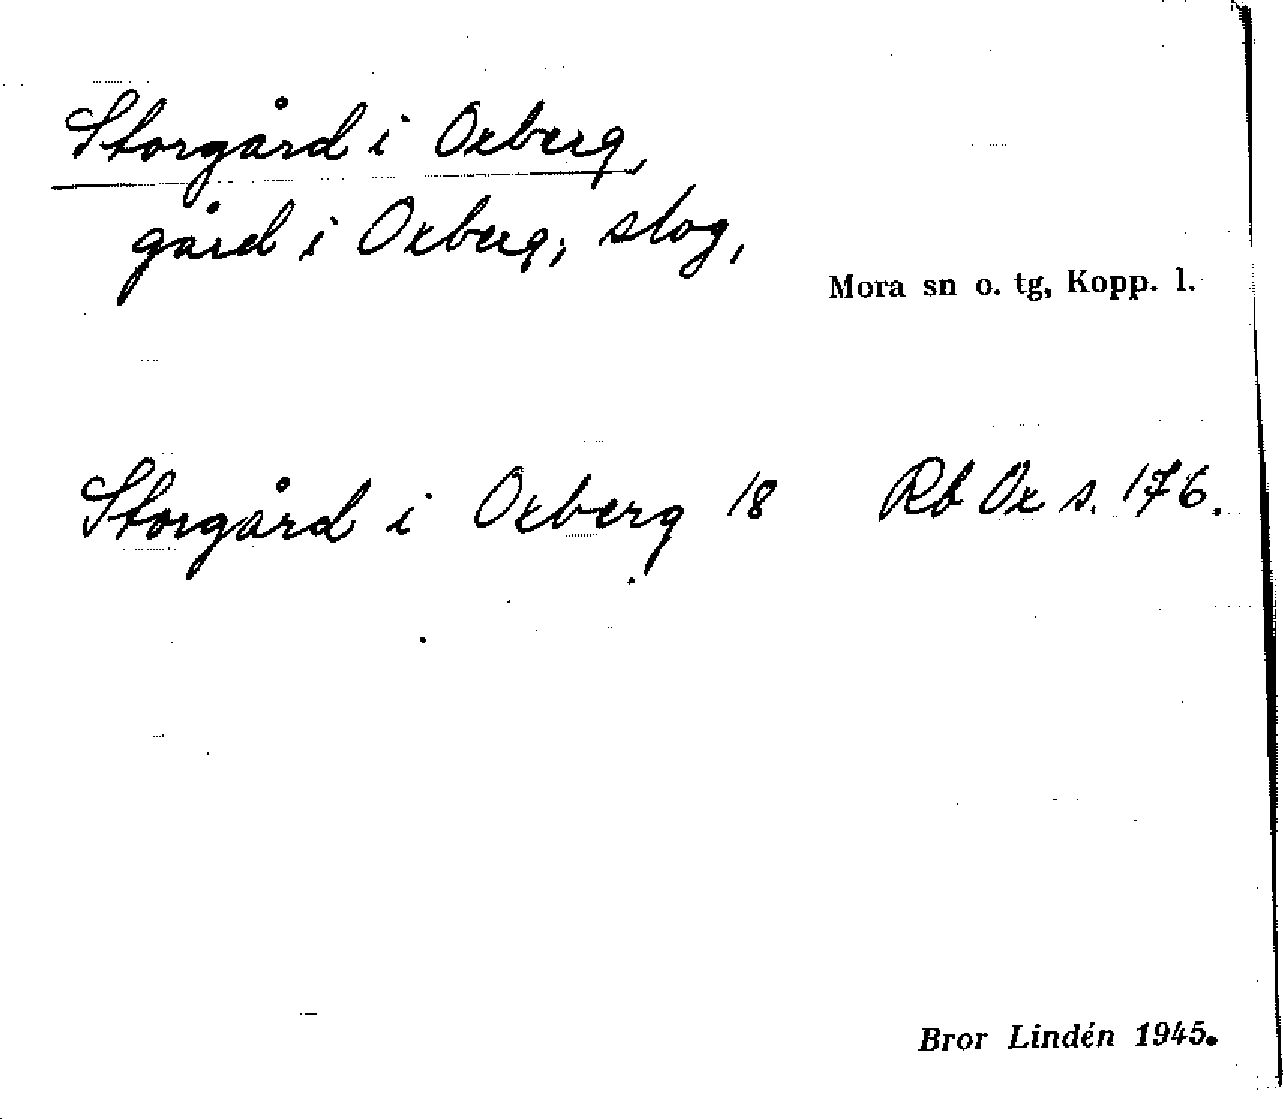 Storgård i Oxberg,
gård i Oxberg, slog,
Mora sn o. tg, Kopp. l.
Storgård i Oxberg 18 Rb Ox s. 176.
Bror Lindén 1945.